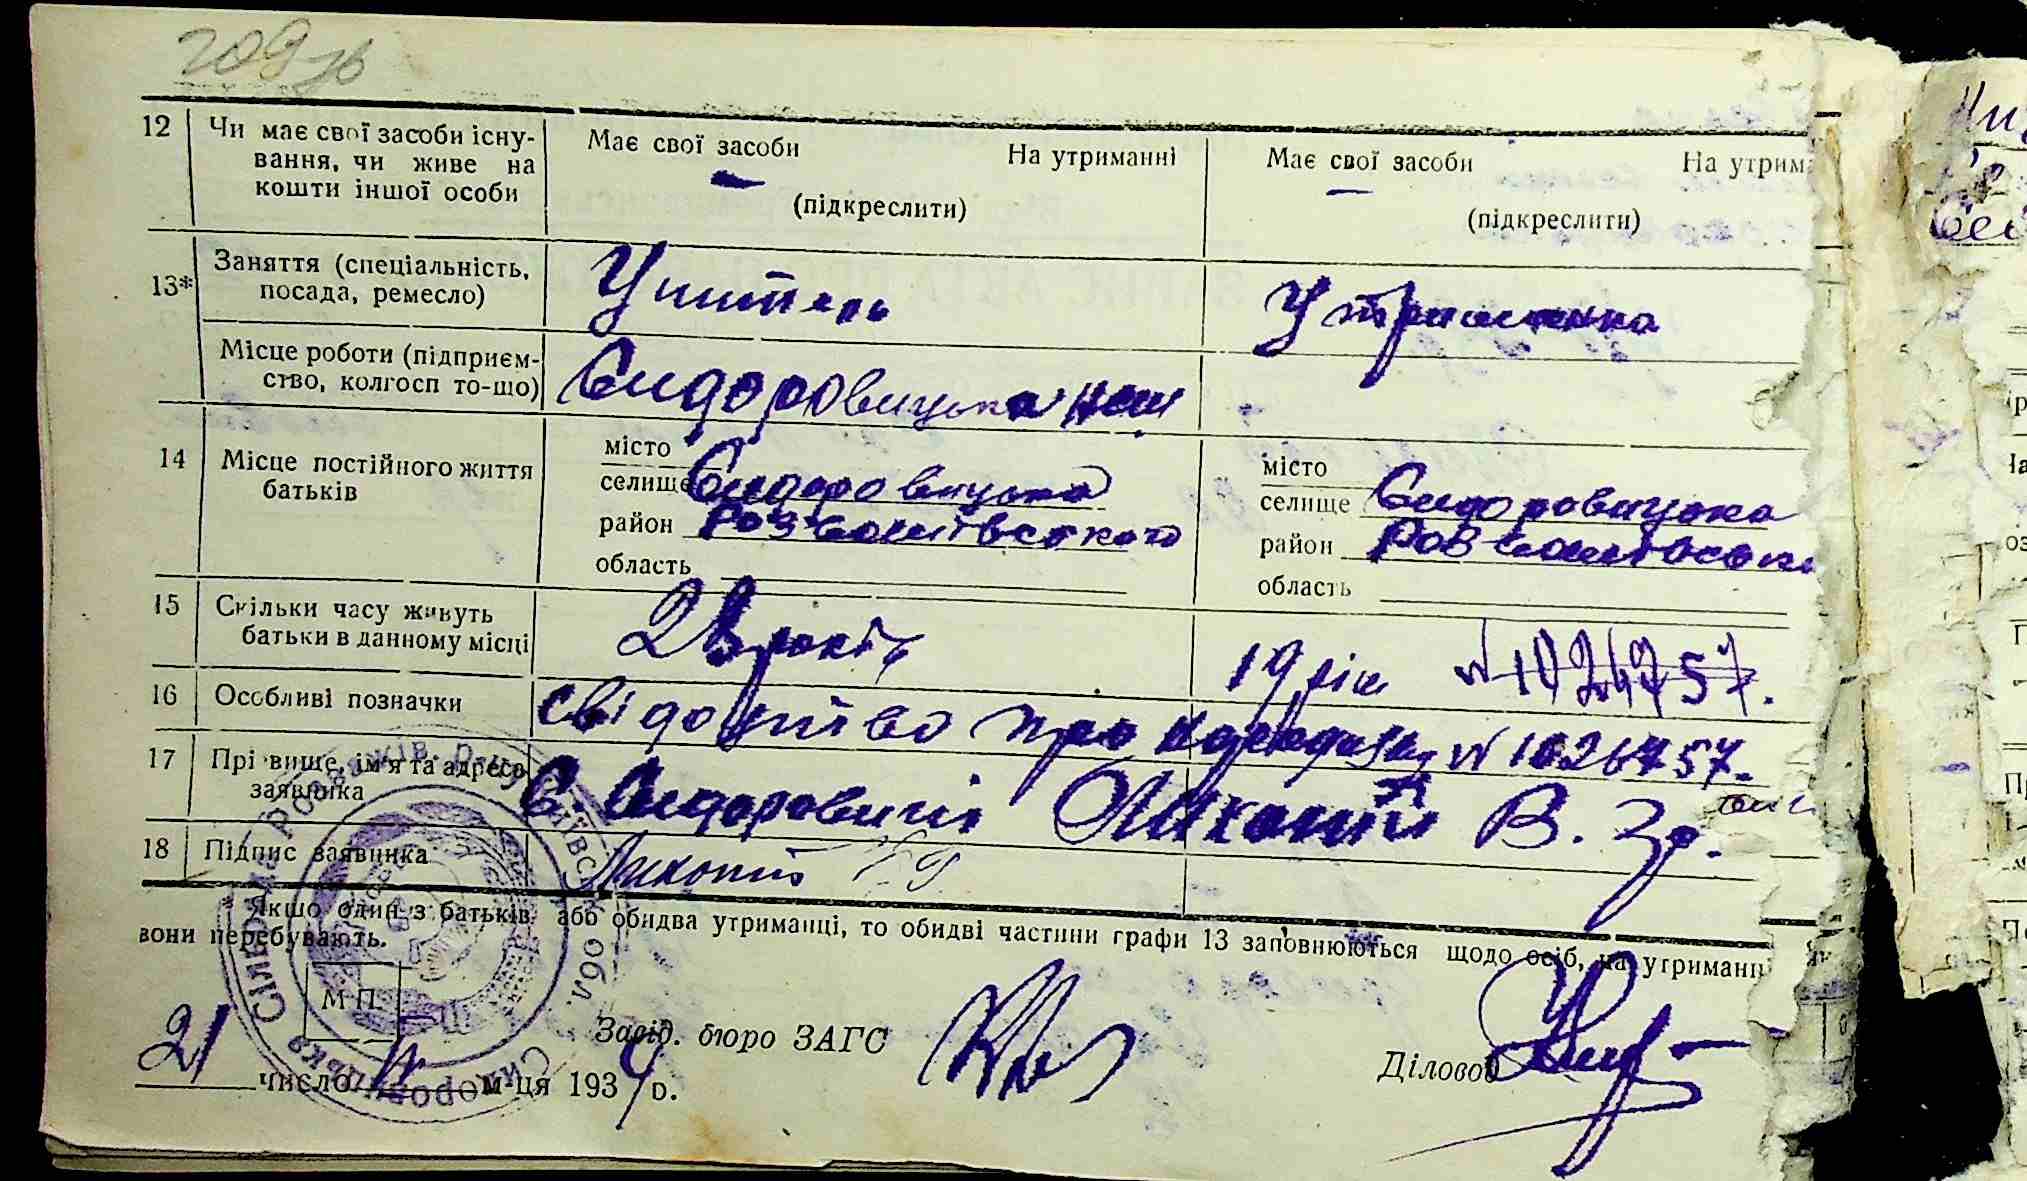 209 зв
12 Чи має свої засоби існу-
вання, чи живе на
кошти іншої особи
Має свої засоби На утриманні
(підкреслити)
Має свої засоби На утрима
(підкреслити)
13* Заняття (спеціальність,
посада, ремесло)
Учитель
Утриманка
Місце роботи (підприєм-
ство, колгосп то-що)
Сидоровицька нсш
14 Місце постійного життя
батьків
місто
селище Сидоровицька
район Розважівського
область
місто
селище Сидоровицька
район Розважівськ
область
15 Скільки часу живуть
батьки в данному місці
2 роки
19 рік
16 Особливі позначки
свідоцтво про народжен № 1026757.
17 Прізвище, ім'я та адреса
заявника
С. Сидоровичі Лихопій В. Гр.
18 Підпис заявника
Лихопій
Якщо один з батьків, або обидва утриманці, то обидві частини графи 13 заповнюються щодо осіб, на утриманні
вони перебувають.
М П
Завід. бюро ЗАГС
Діловод
21 число м-ця 1939 р.